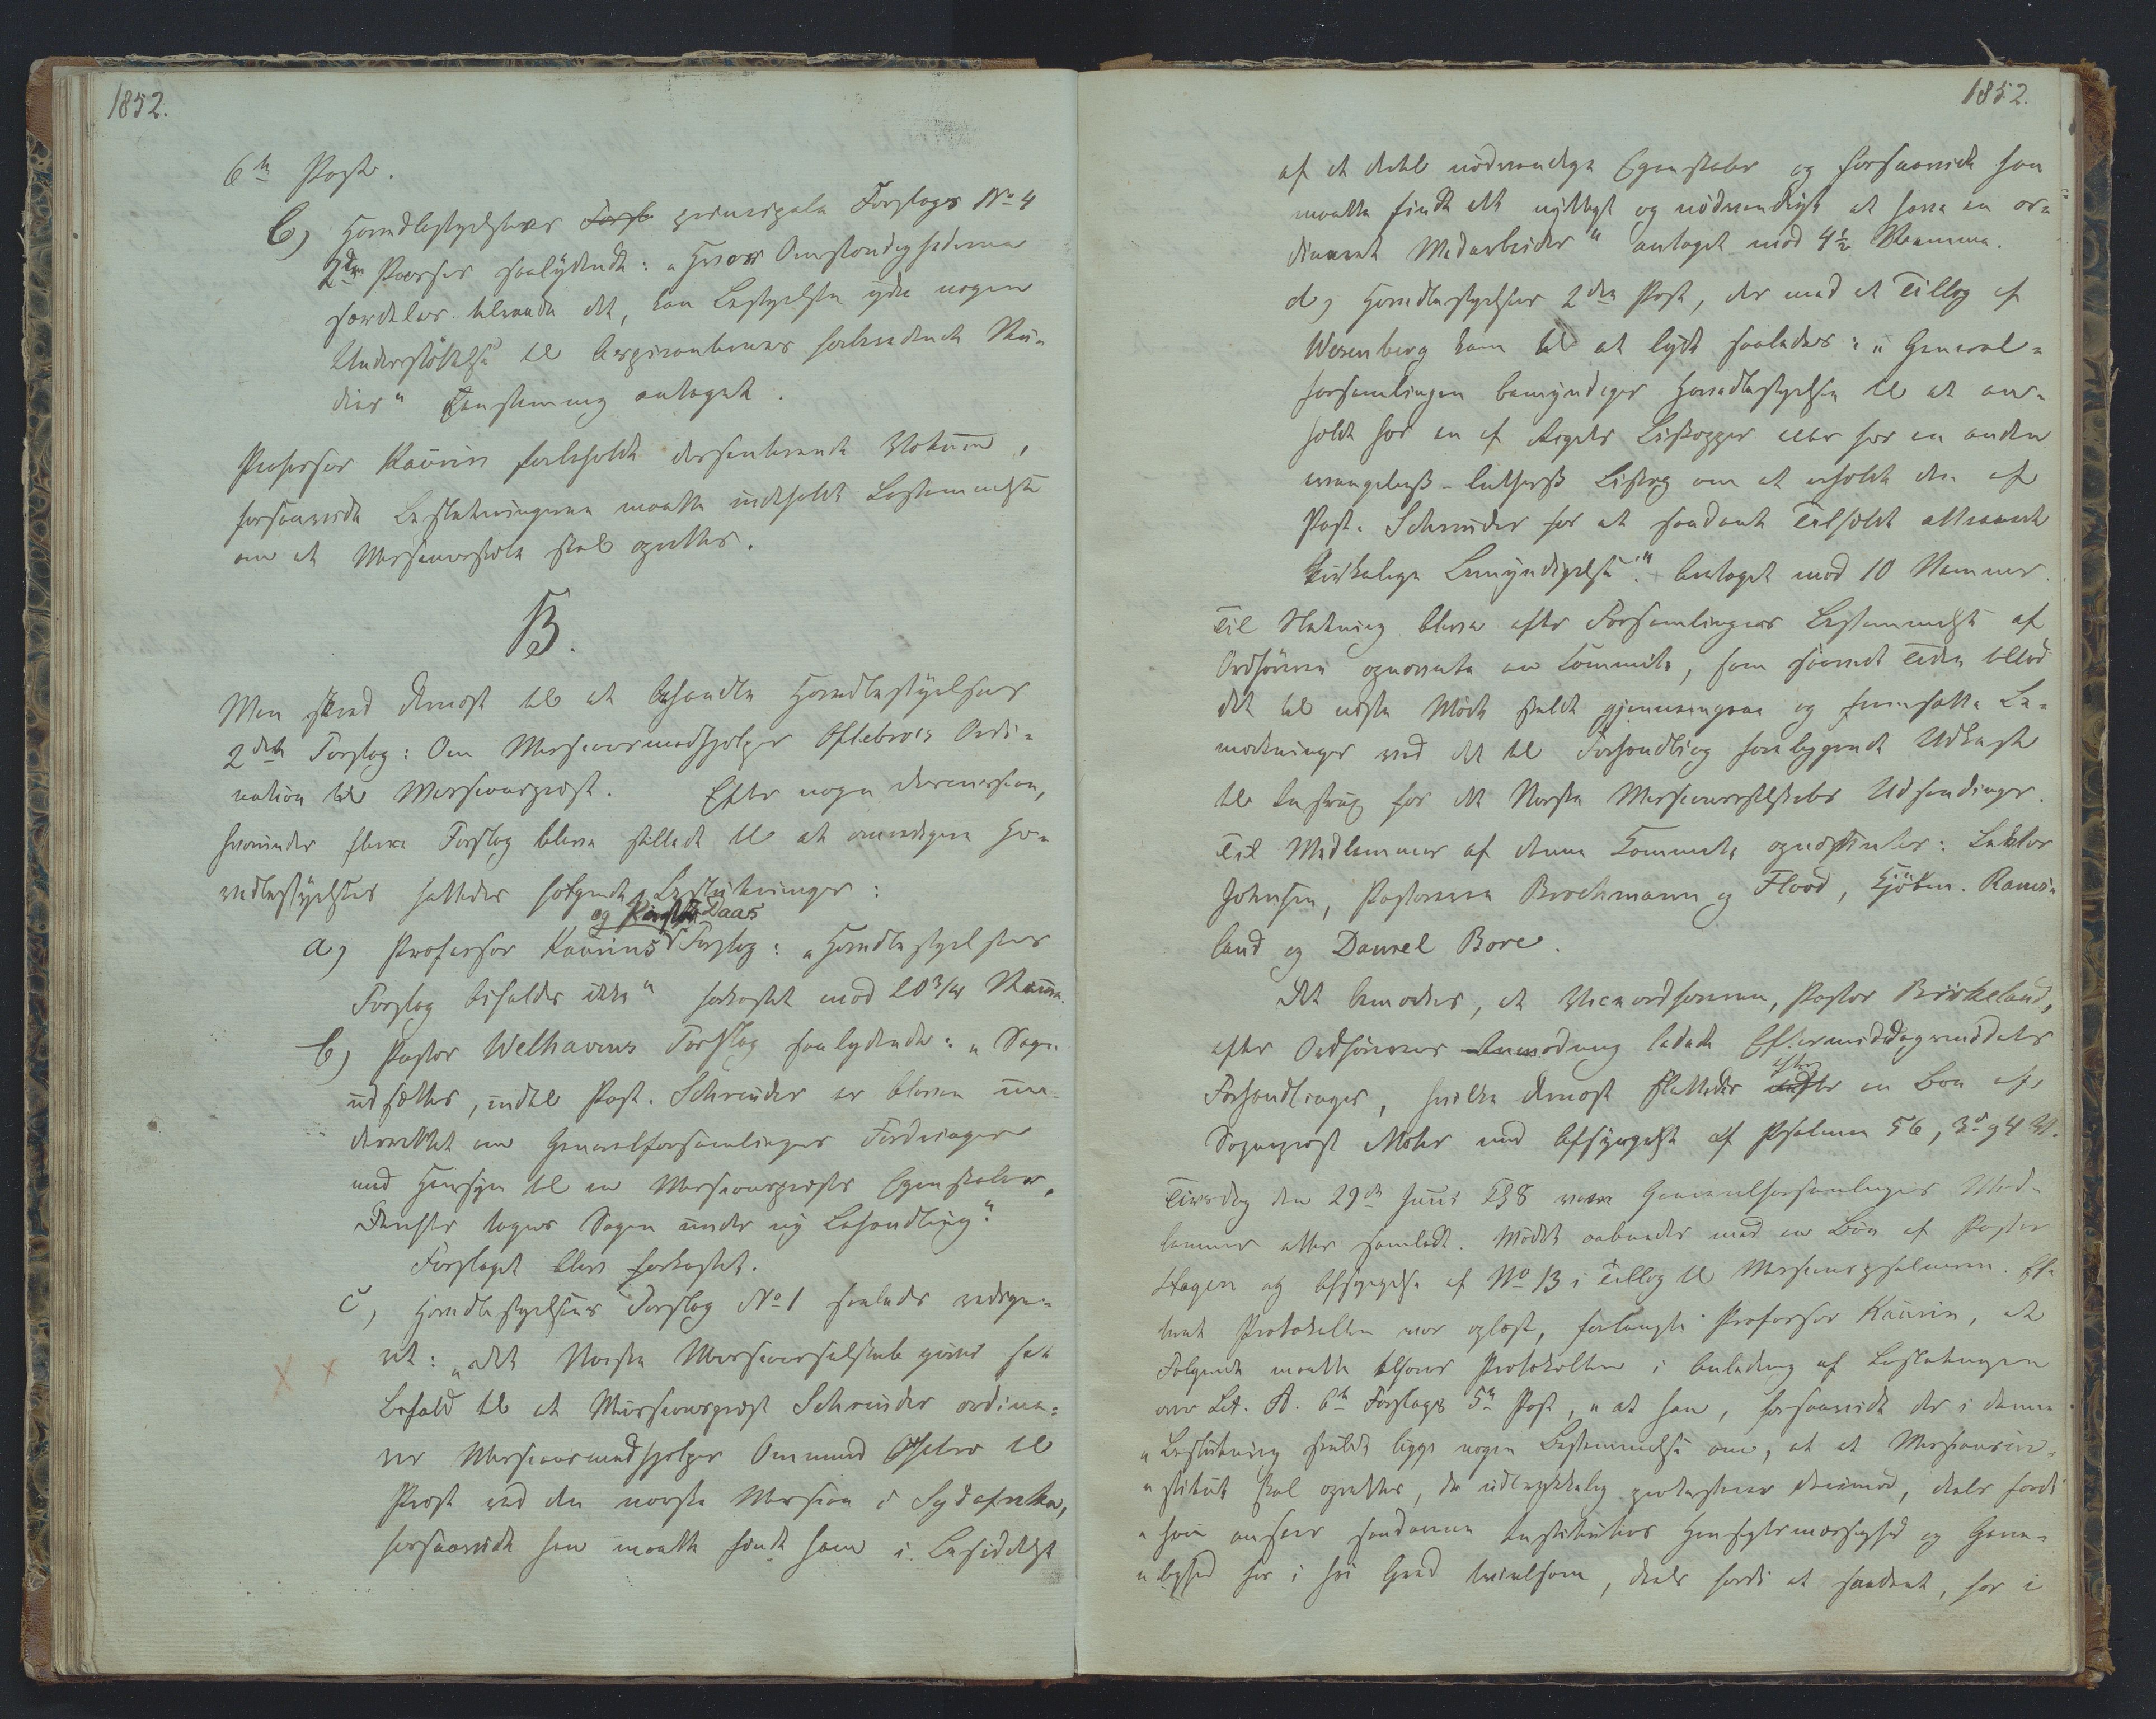 1852.
6te Post.
b) Hovedbestyrelsens Forsl. principale Forslags No 4
2den Passus saalydende: „Hvor Omstændighederne
særdeles tilraade det, kan Bestyrelsen yde nogen
Understøttelse til Aspiranternes forberedende Stu-
dier“ Eenstemmig antaget.
Professor Kaurin forbeholdt dissenterende Votum,
forsaavidt Beslutningerne maatte indeholde Bestemmelse
om at Missionsskole skal oprettes.
B.
Man skred dernæst til at behandle Hovedbestyrelsens
2det Forslag: Om Missionsmedhjælper Oftebroes Ordi-
nation til Missionsprest. Efter nogen Discussion,
hvorunder flere Forslag bleve stillede til at
vedbestyrelsens fattedes følgende Beslutninger:
og Daas
a) Professor Kaurins Forslag: „Hovedbestyrelsens
Forslag bifaldes ikke“ forkastet mod 20 3/4 Stemme.
b) Pastor Welhavens Forslag saalydende: „Sagen
udsættes, indtil Past. Schreuder er bleven un-
derrettet om Generalforsamlingens Fordringer
med Hensyn til en Missionsprests Egenskaber,
derefter tages Sagen under ny Behandling.“
Forslaget blev forkastet.
c) Hovedbestyrelsens Forslag No 1 saaledes redige-
ret: „det Norske Missionsselskab giver sit
Bifald til at Missionsprest Schreuder ordine-
rer Missionsmedhjælper Ommund Oftebro til
Prest ved den norske Mission i Sydafrika,
forsaavidt han maatte finde ham i Besiddelse
1852.
af de dertil nødvendige Egenskaber og forsaavidt han
maatte finde det nyttigt og nødvendigt at have en or-
dineret Medarbeider“ antaget mod 4 1/2 Stemme.
d) Hovedbestyrelsens 2den Post, der med et Tillæg af
Wexenberg kom til at lyde saaledes: „General-
forsamlingen bemyndiger Hovedbestyrelsen til at an-
holde hos en af Rigets Biskopper eller hos en anden
evangelisk-luthersk Biskop om at erholde den af
Past. Schreuder for et saadant Tilfælde attraaede
kirkelige Bemyndigelse.“ Antaget mod 10 Stemmer.
Til Slutning bleve efter Forsamlingens Bestemmelse af
Ordføreren opnævnte en Committe, som saavidt Tiden tillod
det til næste Møde skulde gjennemgaae og fremsætte Be-
mærkninger ved det til Forhandling foreliggende Udkast
til Instrux for det Norske Missionsselskabs Udsendinger.
Til Medlemmer af denne Committe opnævntes: Lektor
Johnsen, Pastorerne Brochmann og Flood, Kjøbm. Rams-
land og Daniel Bore.
Det bemærkes, at Viceordføreren, Pastor Birkeland,
efter Ordførerens Anmodning ledede Eftermiddagsmødets
efter
Forhandlinger, hvilke dernæst sluttedes en Bøn af
Sogneprest Mohr med Afsyngelse af Psalmen 56, 3die og 4 V.
Tirsdag den 29de Juni Kl 8 vare Generalforsamlingens Med-
lemmer atter samlede. Mødet aabnedes med en Bøn af Pastor
Hagen og Afsyngelse af No 13 i Tillæg til Missionspsalmerne. Ef-
terat Protokollen var oplæst, forlangte Professor Kaurin, at
Følgende maatte tilføres Protokollen i Anledning af Beslutningen
over Lit. A. 6te Forslags 5te Post, „at han, forsaavidt der i denne
„Beslutning skulde ligge nogen Bestemmelse om, at et Missionsin-
„stitut skal oprettes, da udtrykkelig protesterer derimod, deels fordi
„han anseer saadanne Instituters Hensigtsmæssighed og Gavn-
„lighed for i høi Grad tvivlsom, deels fordi et saadant, for i